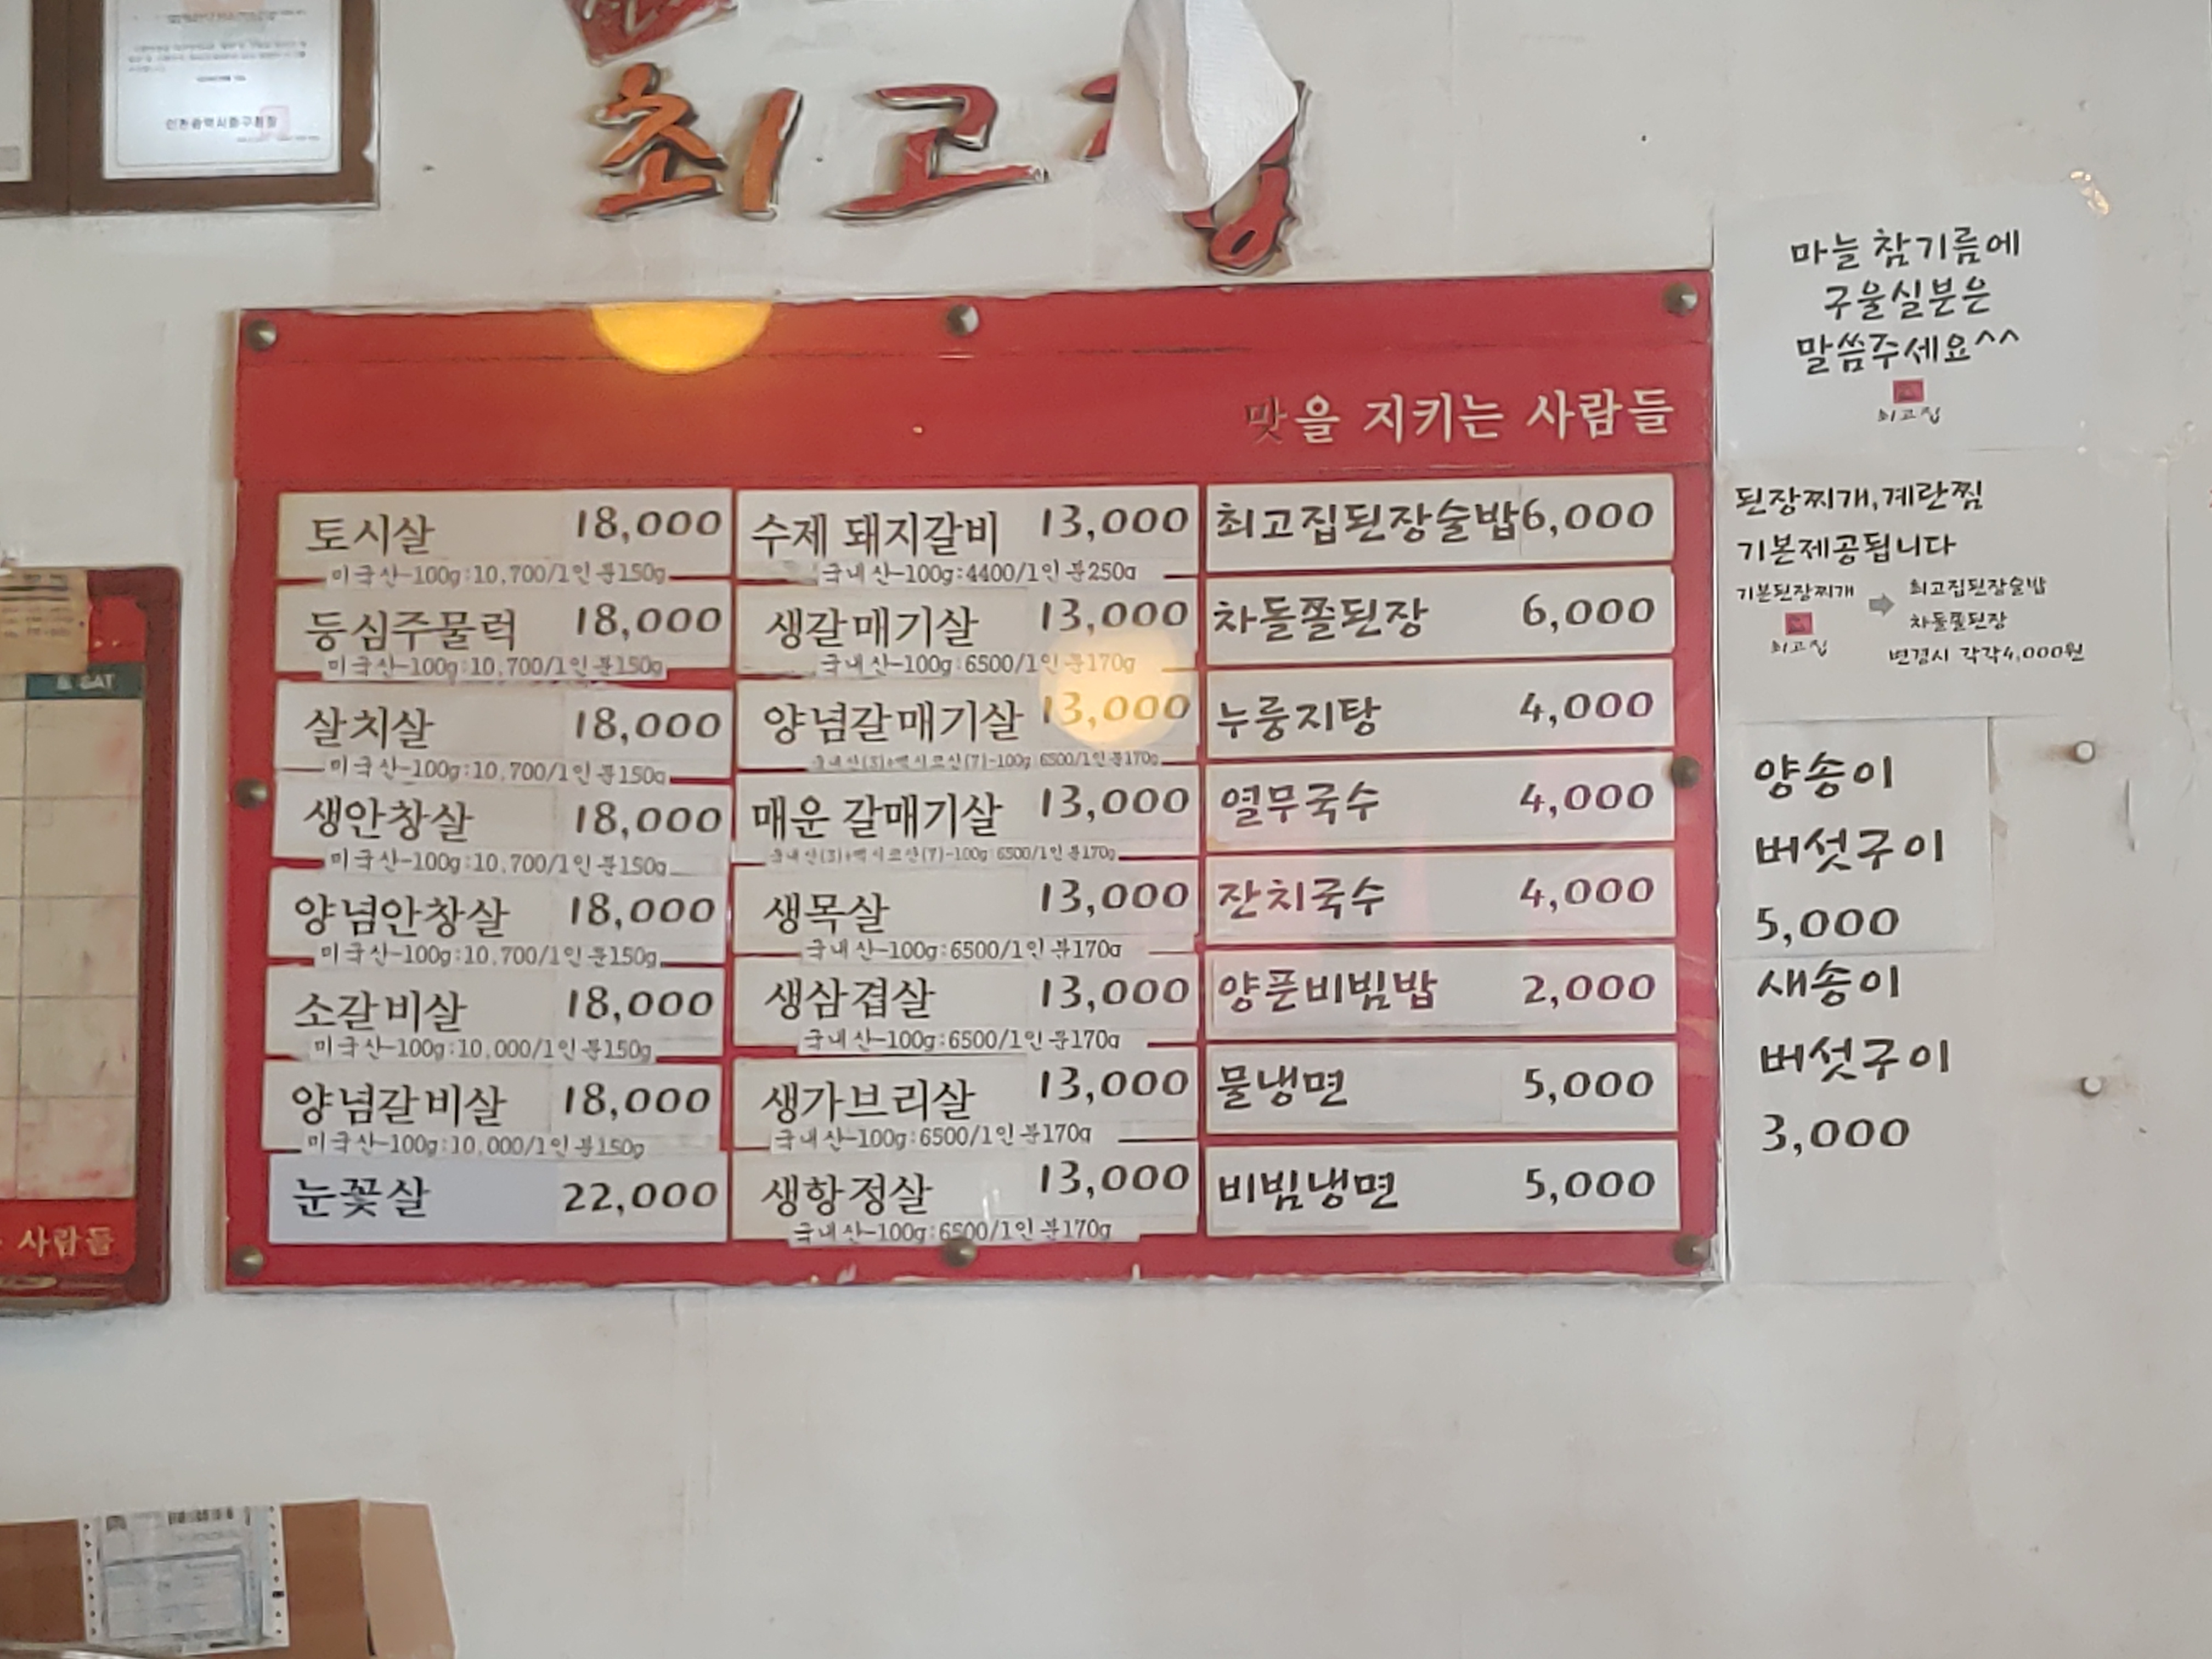 인천광역시중구청장
최고집
맛을 지키는 사람들
토시살 18,000
미국산-100g:10,700/1인분150g
등심주물럭 18,000
미국산-100g:10,700/1인분150g
살치살 18,000
미국산-100g:10,700/1인분150g
생안창살 18,000
미국산-100g:10,700/1인분150g
양념안창살 18,000
미국산-100g:10,700/1인분150g
소갈비살 18,000
미국산-100g:10,000/1인분150g
양념갈비살 18,000
미국산-100g:10,000/1인분150g
눈꽃살 22,000
수제 돼지갈비 13,000
국내산-100g:4400/1인분250g
생갈매기살 13,000
국내산-100g:6500/1인분170g
양념갈매기살 13,000
국내산(3)+멕시코산(7)-100g 6500/1인분170g
매운 갈매기살 13,000
국내산(3)+멕시코산(7)-100g:6500/1인분170g
생목살 13,000
국내산-100g:6500/1인분170g
생삼겹살 13,000
국내산-100g:6500/1인분170g
생가브리살 13,000
국내산-100g:6500/1인분170g
생항정살 13,000
국내산-100g:6500/1인분170g
최고집된장술밥 6,000
차돌쫄된장 6,000
누룽지탕 4,000
열무국수 4,000
잔치국수 4,000
양푼비빔밥 2,000
물냉면 5,000
비빔냉면 5,000
마늘 참기름에
구울실분은
말씀주세요^^
최고집
된장찌개,계란찜
기본제공됩니다
기본된장찌개 → 최고집된장술밥
차돌쫄된장
최고집
변경시 각각4,000원
양송이
버섯구이
5,000
새송이
버섯구이
3,000
SAT
사람들